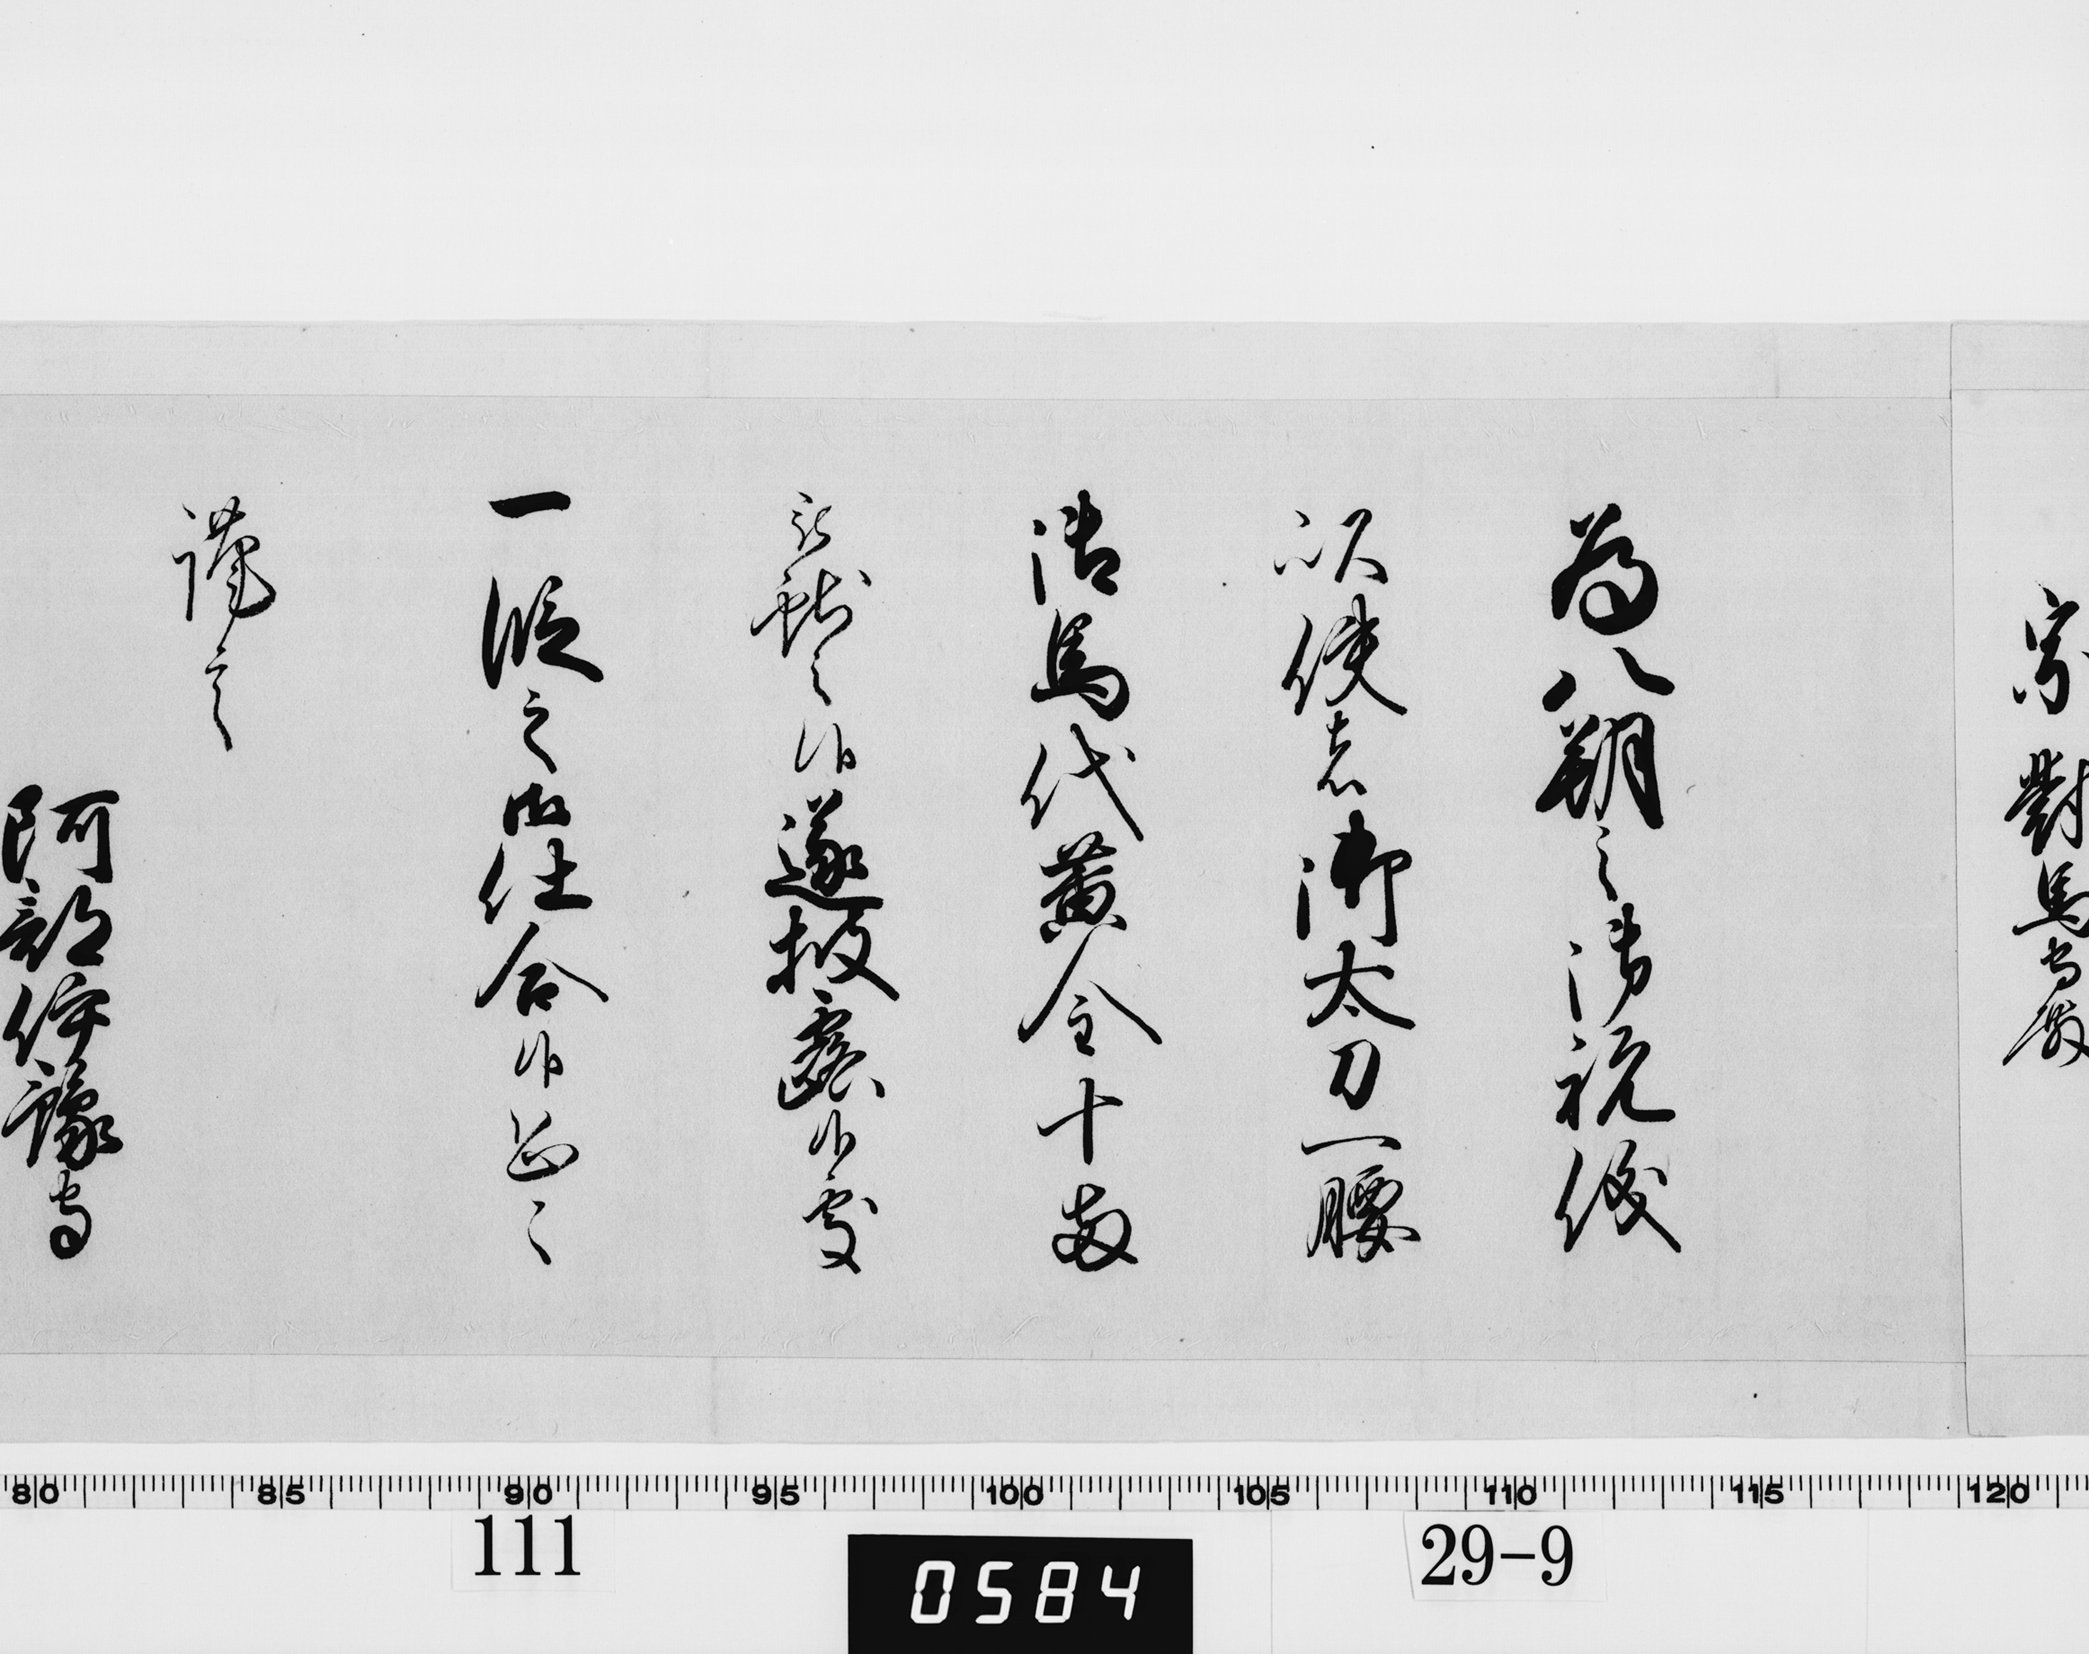 宗對馬守殿
為八朔之御祝儀
以使者御太刀一腰
御馬代黄金十両
被獻之候遂披露候處
一段之御仕合候恐々
謹言
阿部伊豫守
80 85 90 95 100 105 110 115 120
111
0584
29-9